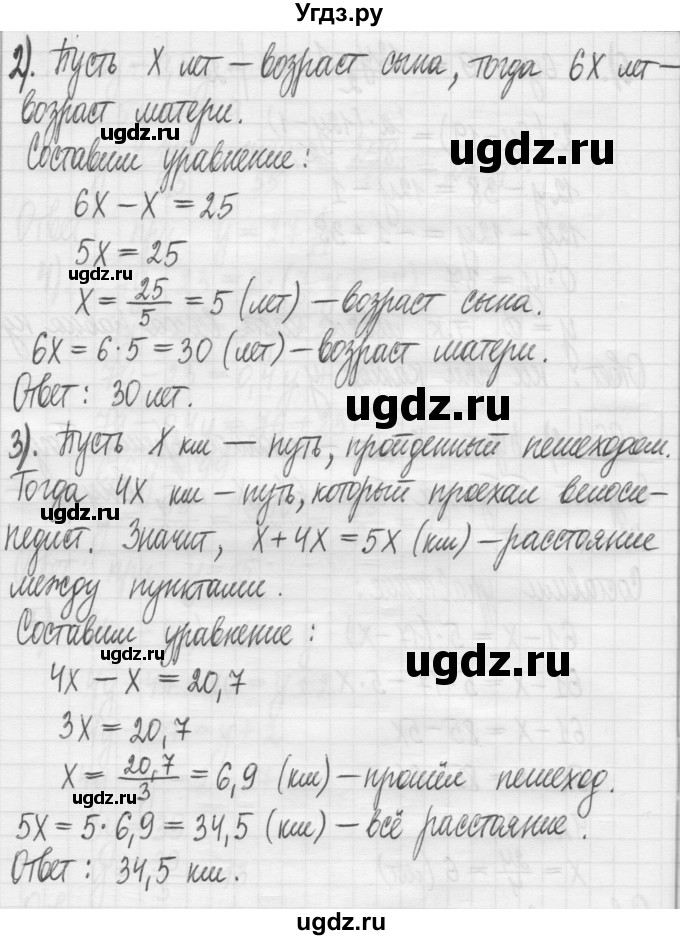 Угдз.ру
2). Пусть X лет – возраст сына, тогда 6X лет –
возраст матери.
ugdz.ru
ugdz.ru
Составим уравнение:
6X – X = 25
5X = 25
ugdz.ru
X = 25/5 = 5 (лет) – возраст сына.
6X = 6·5 = 30 (лет) – возраст матери.
Ответ: 30 лет.
ugdz.ru
3). Пусть X км – путь, пройденный пешеходом.
Тогда 4X км – путь, который проехал велоси-
ugdz.ru
педист. Значит, X + 4X = 5X (км) – расстояние
между пунктами.
Составим уравнение:
ugdz.ru
ugdz.ru
4X – X = 20,7
3X = 20,7
X = 20,7/3 = 6,9 (км) – прошёл пешеход.
ugdz.ru
5X = 5·6,9 = 34,5 (км) – всё расстояние.
Ответ: 34,5 км.
ugdz.ru